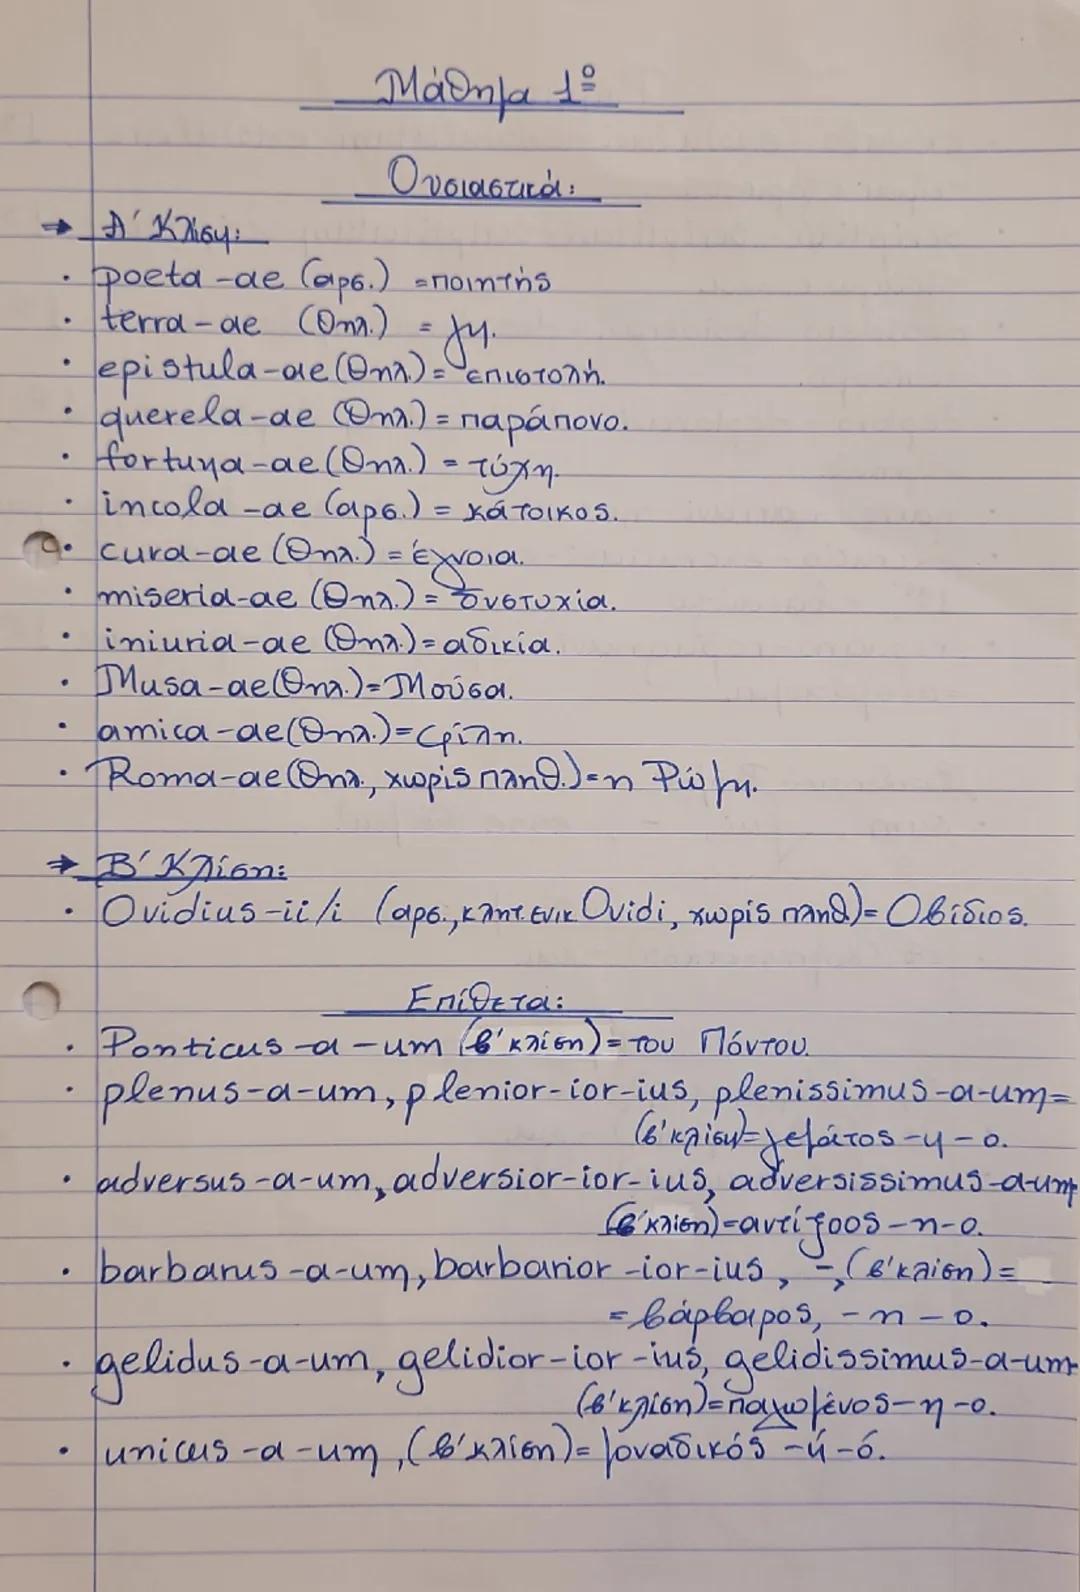 Μάθημα 1º
Ουσιαστικά:
→ Α' Κλίση:
· poeta -ae (αρσ.) =ποιητής
· terra-ae (θηλ.) = γη.
· epistula-ae (θηλ.)= επιστολή.
· querela-ae (θηλ.)= παράπονο.
· fortuna-ae (θηλ.) = τύχη.
· incola -ae (αρσ.) = κάτοικος.
· cura-ae (θηλ.) = έγνοια.
· miseria-ae (θηλ.) = δυστυχία.
· iniuria-ae (θηλ.)= αδικία.
· Musa-ae(θηλ.)=Μούσα.
· amica-ae(θηλ.)=φίλη.
· Roma-ae(θηλ., χωρίς πληθ.)=η Ρώμη.
→ Β' Κλίση:
· Ovidius-ii/i (αρσ., κλητ. ενικ Ovidi, χωρίς πληθ)= Οβίδιος.
Επίθετα:
· Ponticus -a -um (β' κλίση)= του Πόντου.
· plenus-a-um, plenior-ior-ius, plenissimus-a-um=
(β' κλίση)=γεμάτος -η -ο.
· adversus-a-um, adversior-ior-ius, adversissimus-a-um
(β' κλίση)=αντίξοος -η-ο.
· barbarus -a-um, barbarior -ior-ius, -, (β' κλίση)=
= βάρβαρος, -η -ο.
· gelidus-a-um, gelidior-ior-ius, gelidissimus-a-um
(β' κλίση)=παγωμένος-η -ο.
· unicus -a -um, (β' κλίση)= μοναδικός -ή-ό.